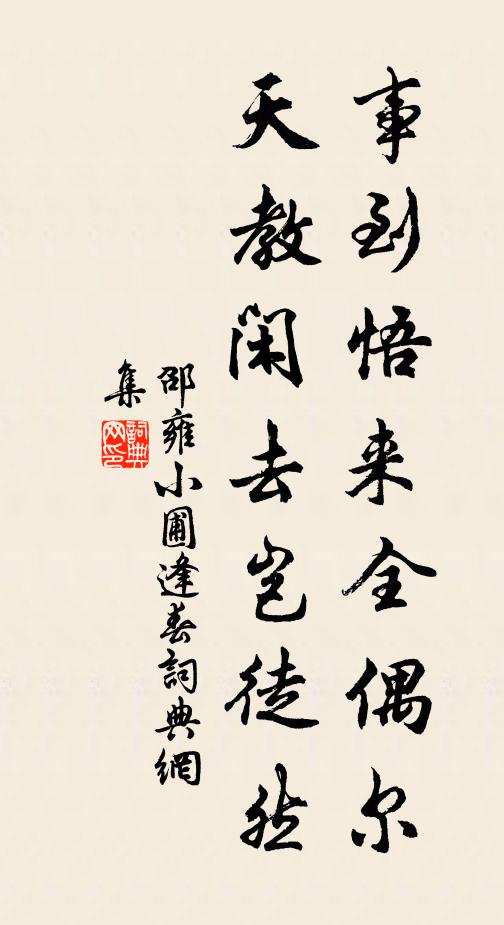 事到悟来全偶尔
天教闲去岂徒然
邵雍小圃逢春詞典網
集
詞典网印